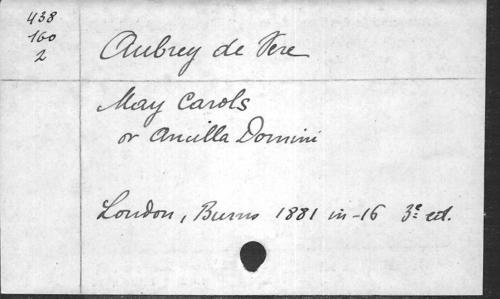 438
160
2
Aubrey de Vere
May Carols
or Ancilla Domini
London, Burns 1881 in-16 3e ed.